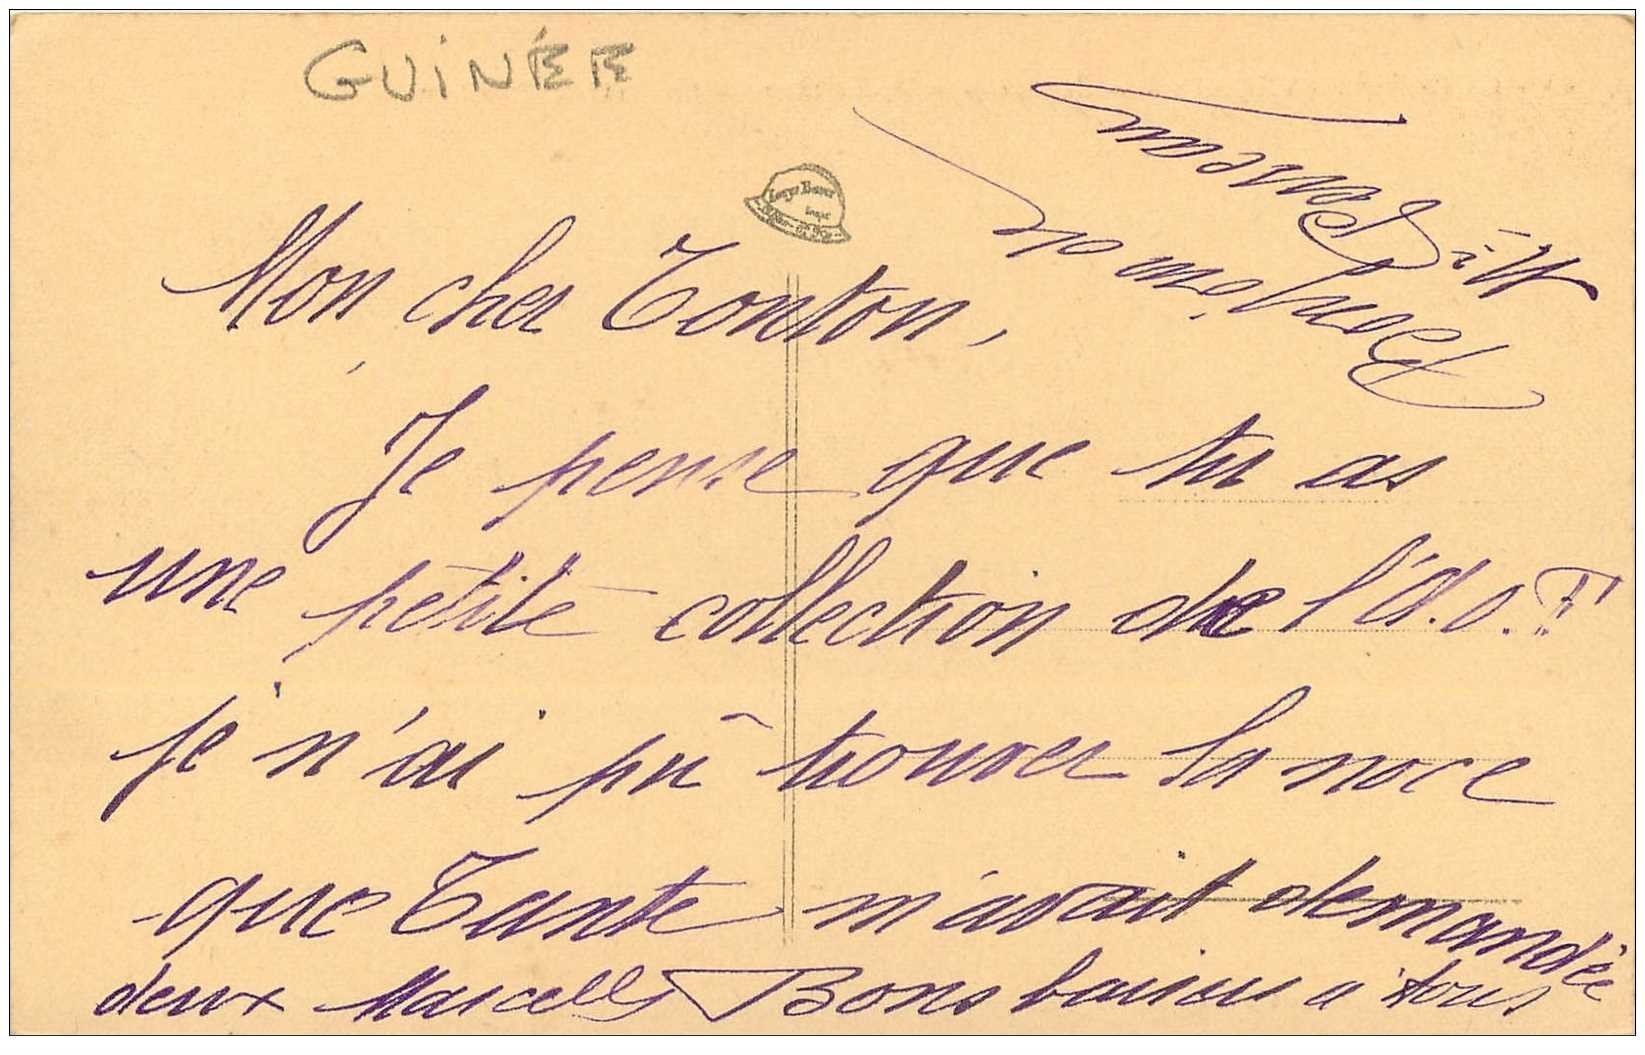 GUINÉE
Mon cher Tonton,
Je pense que tu as
une petite collection de l'A.O.F
je n'ai pû trouver la noce
que Tante m'avait demandée
deux Marcells Bons baisers à tous